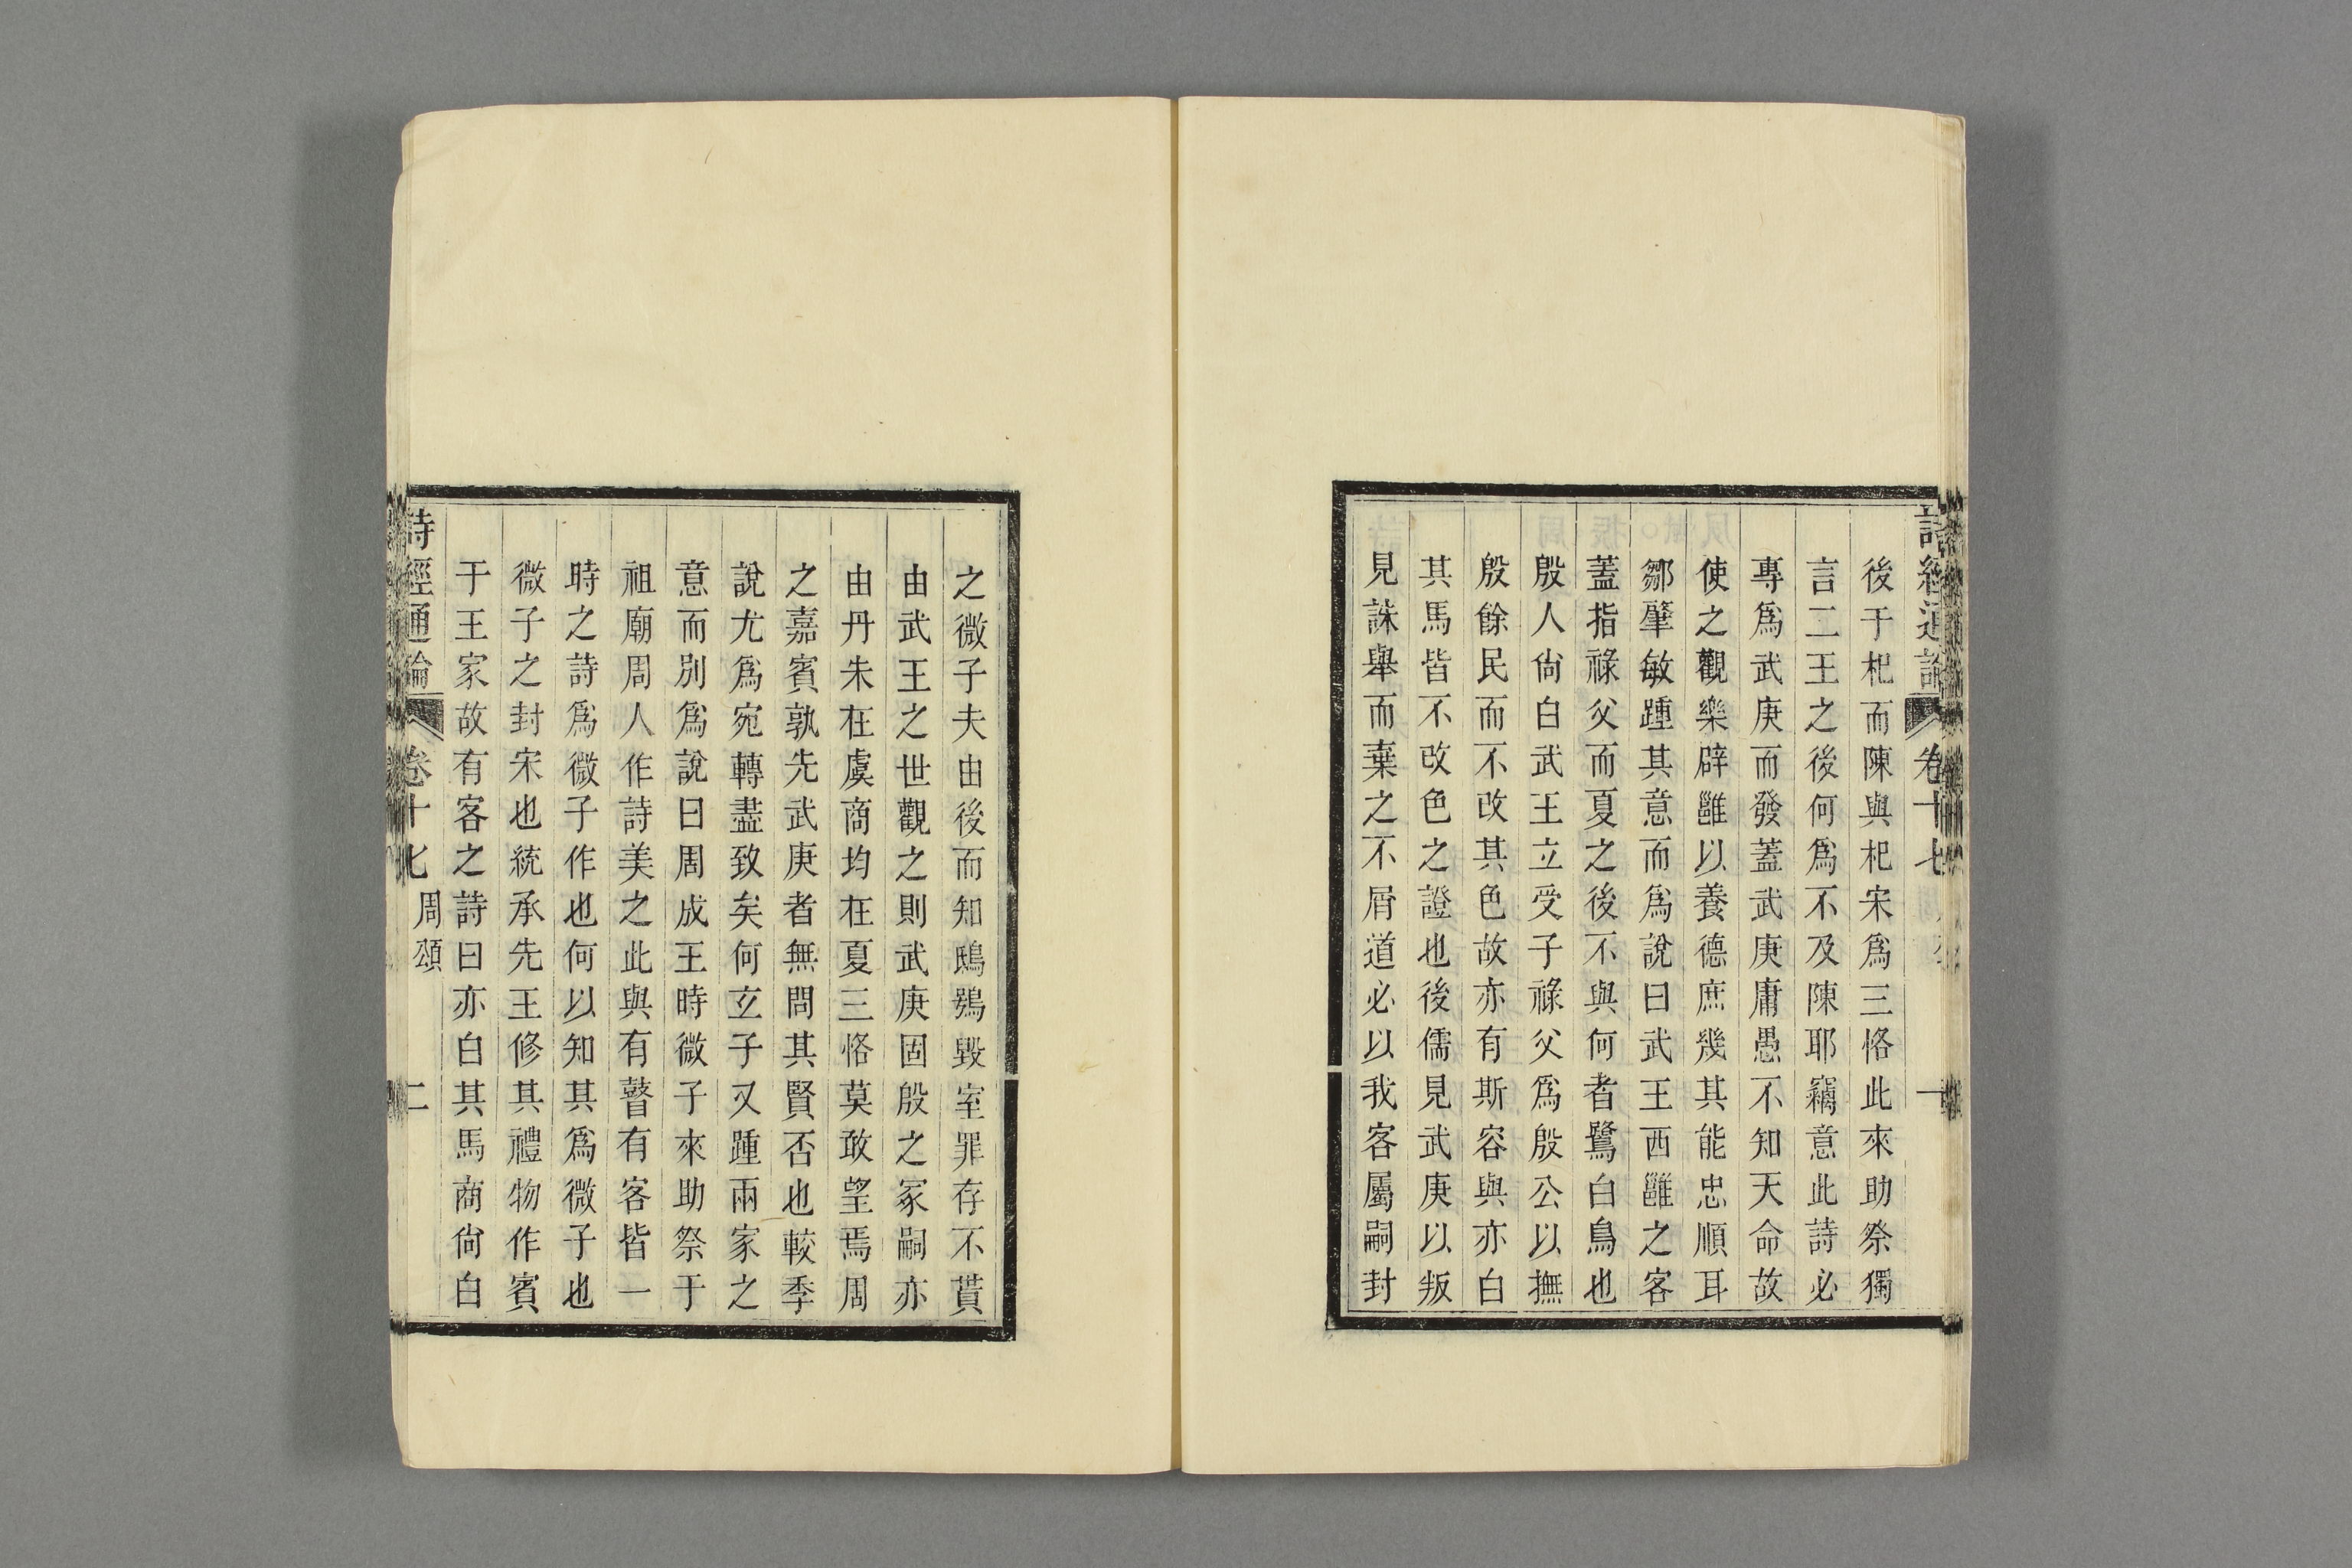 詩經通論 卷十七 一
後于杞而陳與杞宋爲三恪此來助祭獨
言二王之後何爲不及陳耶竊意此詩必
專爲武庚而發蓋武庚庸愚不知天命故
使之觀樂辟雝以養德庶幾其能忠順耳
鄒肇敏踵其意而爲說曰武王西雝之客
蓋指祿父而夏之後不與何者鷺白鳥也
殷人尙白武王立受子祿父爲殷公以撫
殷餘民而不改其色故亦有斯容與亦白
其馬皆不改色之證也後儒見武庚以叛
見誅舉而棄之不屑道必以我客屬嗣封
之微子夫由後而知鴟鴞毀室罪存不貰
由武王之世觀之則武庚固殷之冢嗣亦
由丹朱在虞商均在夏三恪莫敢望焉周
之嘉賓孰先武庚者無問其賢否也較季
說尤爲宛轉盡致矣何玄子又踵兩家之
意而別爲說曰周成王時微子來助祭于
祖廟周人作詩美之此與有瞽有客皆一
時之詩爲微子作也何以知其爲微子也
微子之封宋也統承先王修其禮物作賓
于王家故有客之詩曰亦白其馬商尙白
詩經通論 卷十七 周頌 二